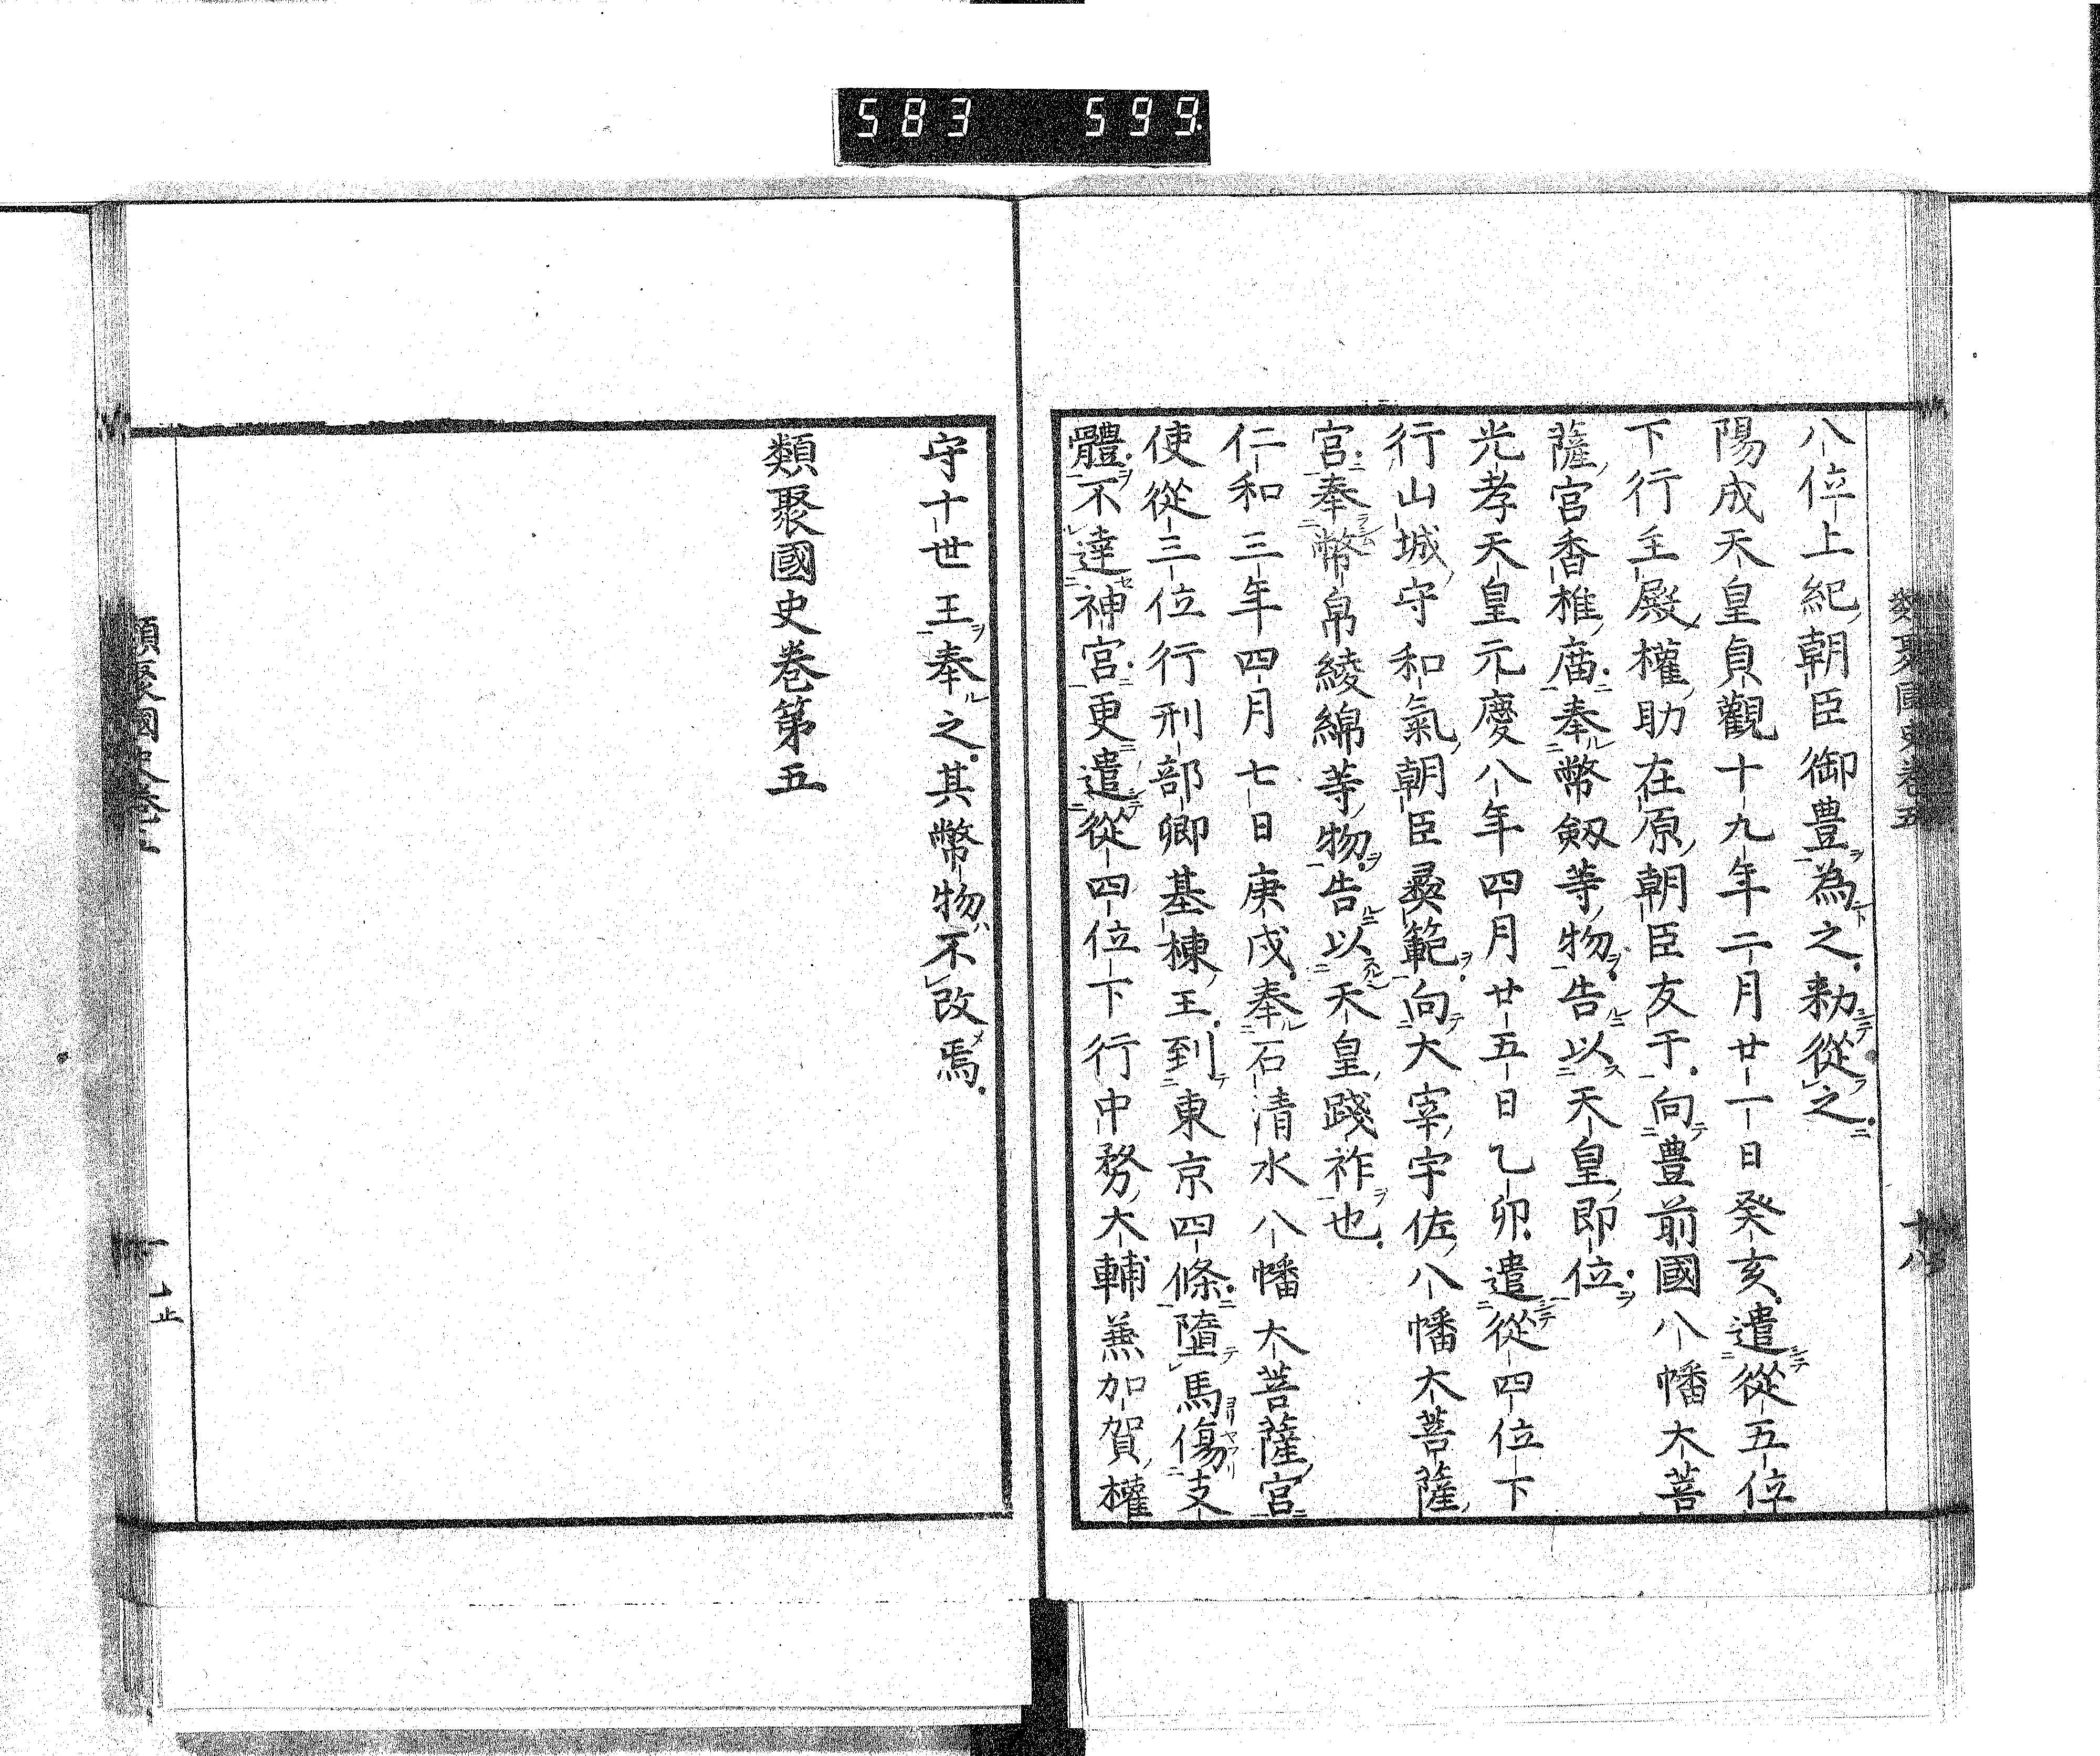 583 599
類聚國史卷五
十八
八位上紀朝臣御豊為之勑從之
陽成天皇貞觀十九年二月廿一日癸亥遣從五位
下行主殿權助在原朝臣友于向豊前國八幡大菩
薩宮香椎庿奉幣劔等物告以天皇即位
光孝天皇元慶八年四月廿五日乙卯遣從四位下
行山城守和氣朝臣彛範向大宰宇佐八幡大菩薩
宮奉幣帛綾綿等物告以天皇踐祚也
仁和三年四月七日庚戌奉石清水八幡大菩薩宮
使從三位行刑部卿基棟王到東京四條墮馬傷支
體不達神宮更遣從四位下行中務大輔兼加賀權
守十世王奉之其幣物不改焉
類聚國史卷第五
類聚國史卷
止